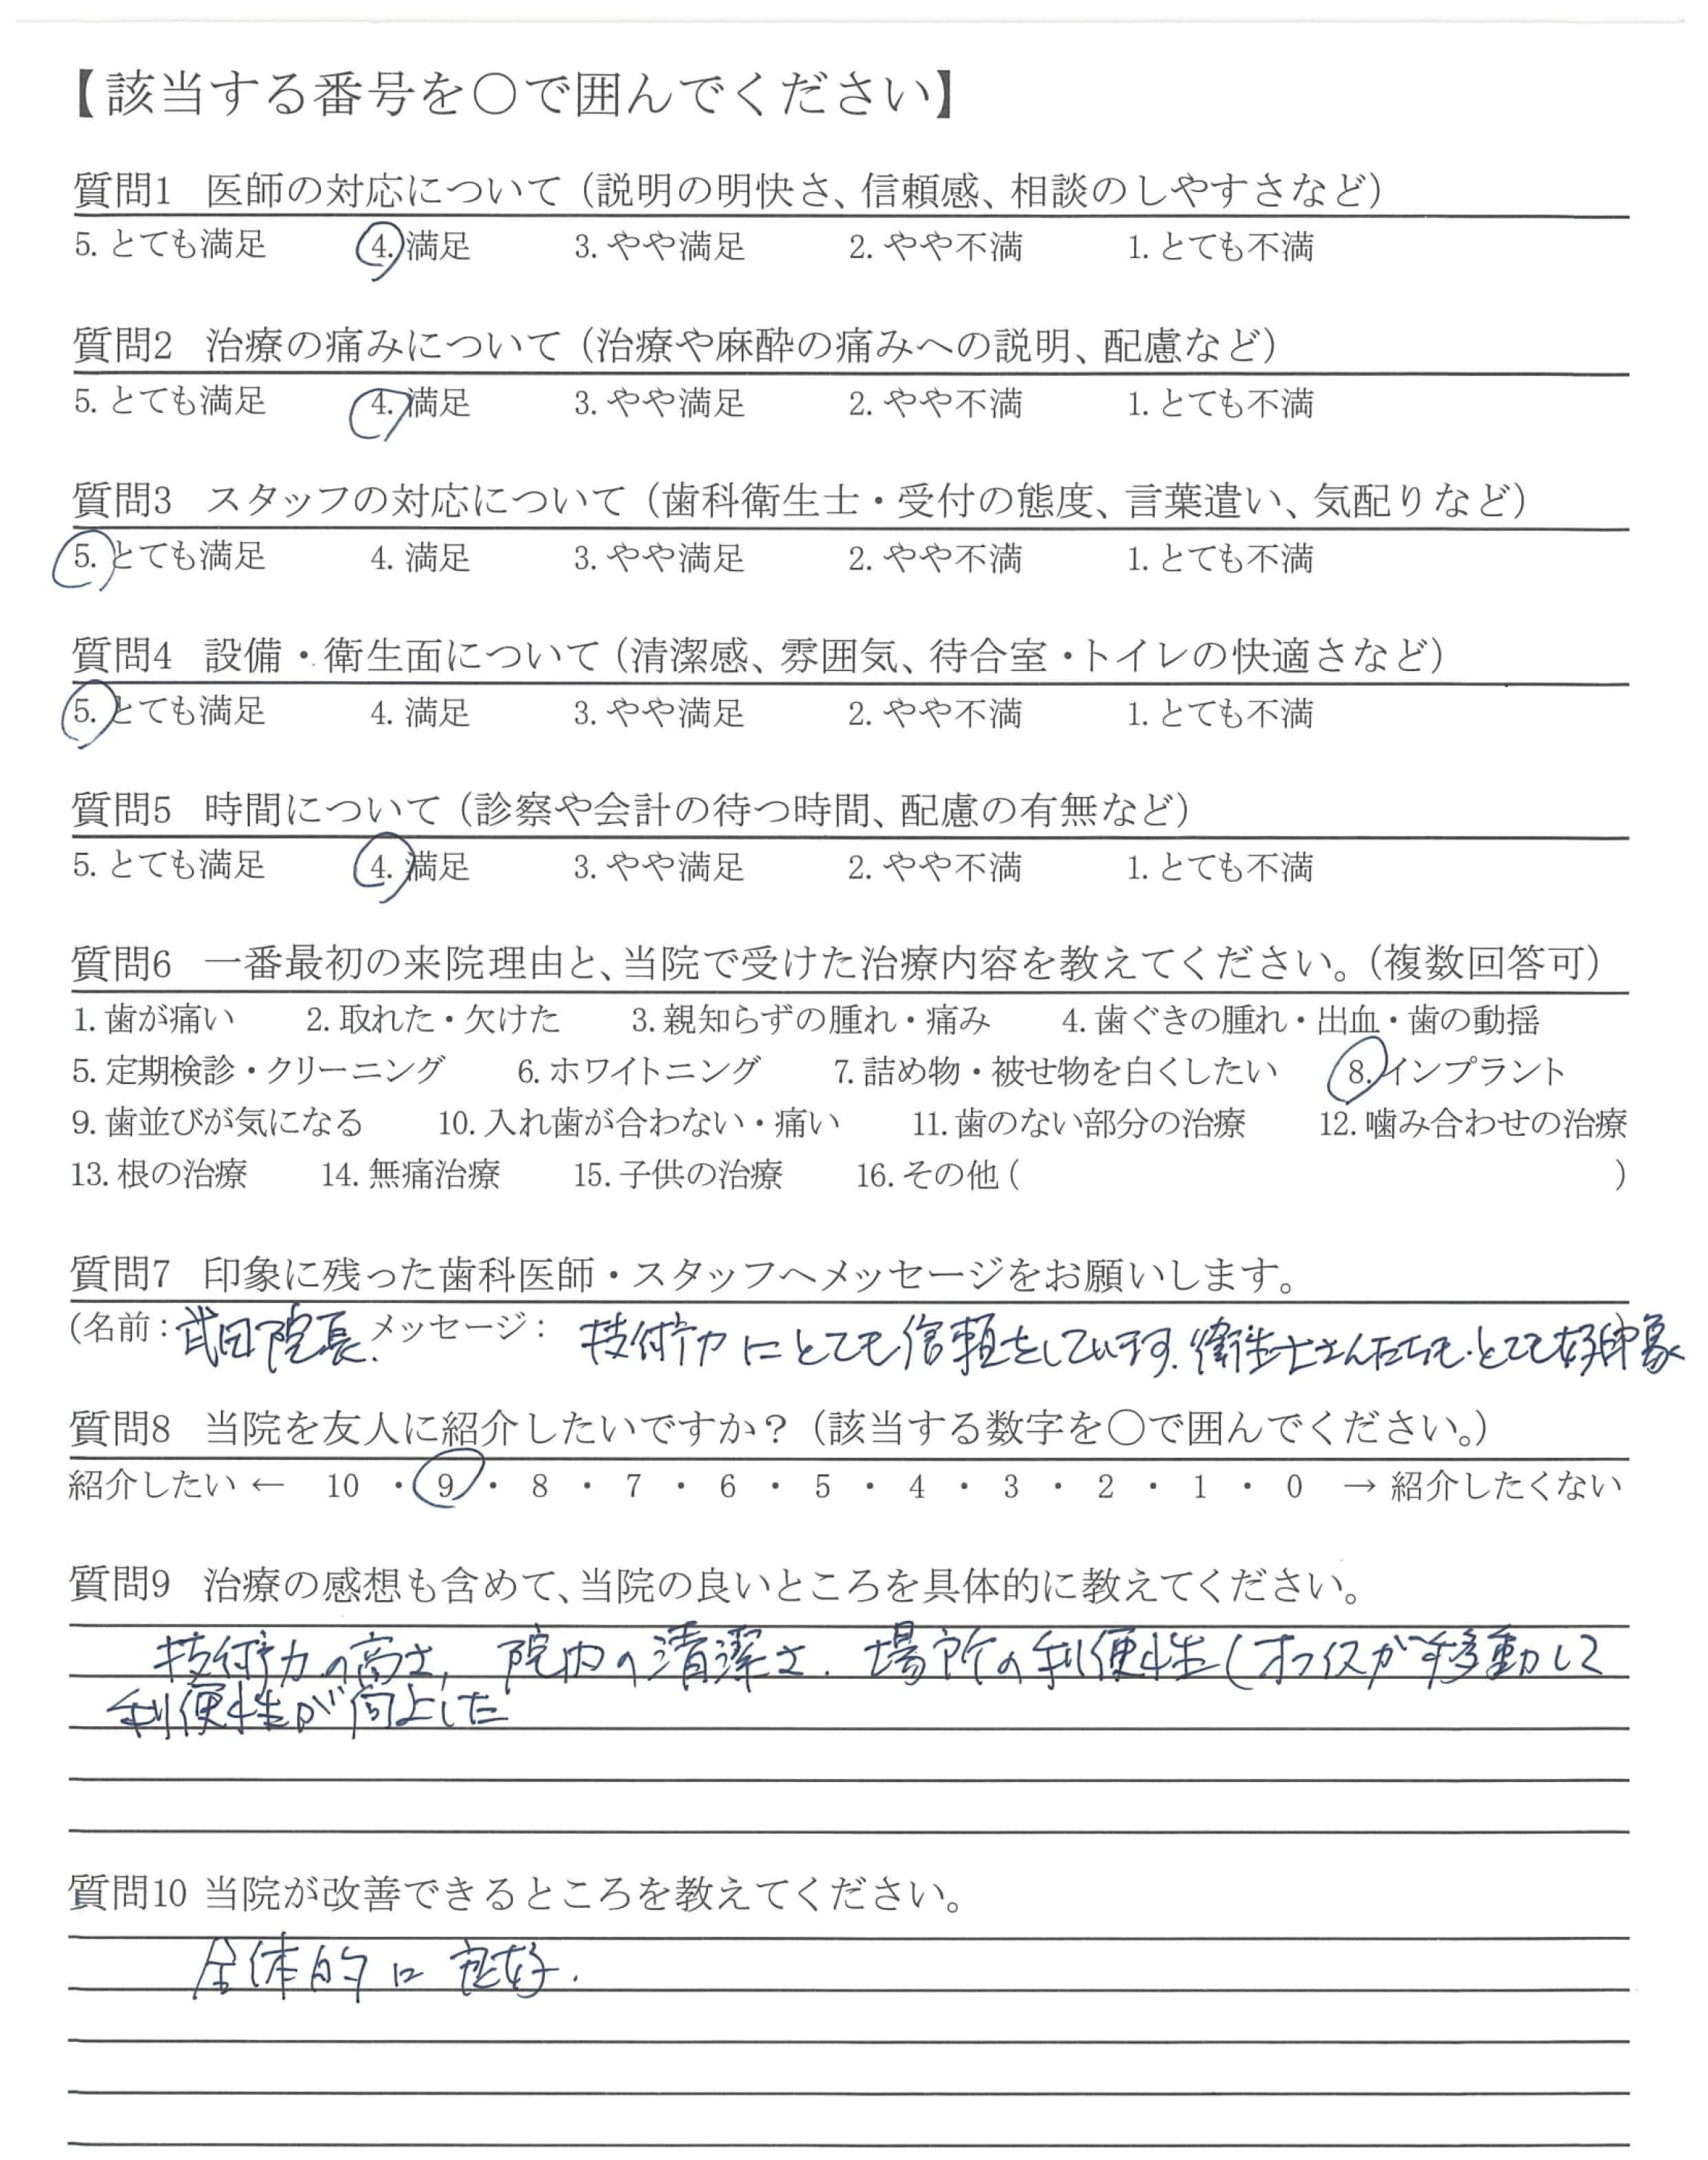 【該当する番号を○で囲んでください】
質問1 医師の対応について（説明の明快さ、信頼感、相談のしやすさなど）
5. とても満足 4. 満足 3. やや満足 2. やや不満 1. とても不満
質問2 治療の痛みについて（治療や麻酔の痛みへの説明、配慮など）
5. とても満足 4. 満足 3. やや満足 2. やや不満 1. とても不満
質問3 スタッフの対応について（歯科衛生士・受付の態度、言葉遣い、気配りなど）
5. とても満足 4. 満足 3. やや満足 2. やや不満 1. とても不満
質問4 設備・衛生面について（清潔感、雰囲気、待合室・トイレの快適さなど）
5. とても満足 4. 満足 3. やや満足 2. やや不満 1. とても不満
質問5 時間について（診察や会計の待つ時間、配慮の有無など）
5. とても満足 4. 満足 3. やや満足 2. やや不満 1. とても不満
質問6 一番最初の来院理由と、当院で受けた治療内容を教えてください。（複数回答可）
1. 歯が痛い 2. 取れた・欠けた 3. 親知らずの腫れ・痛み 4. 歯ぐきの腫れ・出血・歯の動揺
5. 定期検診・クリーニング 6. ホワイトニング 7. 詰め物・被せ物を白くしたい 8. インプラント
9. 歯並びが気になる 10. 入れ歯が合わない・痛い 11. 歯のない部分の治療 12. 噛み合わせの治療
13. 根の治療 14. 無痛治療 15. 子供の治療 16. その他（ ）
質問7 印象に残った歯科医師・スタッフへメッセージをお願いします。
（名前：武田院長. メッセージ： 技術力にとても信頼をしています. 衛生士さんたちも・とても好印象）
質問8 当院を友人に紹介したいですか？（該当する数字を○で囲んでください。）
紹介したい ← 10 ・ 9 ・ 8 ・ 7 ・ 6 ・ 5 ・ 4 ・ 3 ・ 2 ・ 1 ・ 0 → 紹介したくない
質問9 治療の感想も含めて、当院の良いところを具体的に教えてください。
技術力の高さ, 院内の清潔さ. 場所の利便性（オフィスが移動して
利便性が向上した
質問10 当院が改善できるところを教えてください。
全体的に良好.